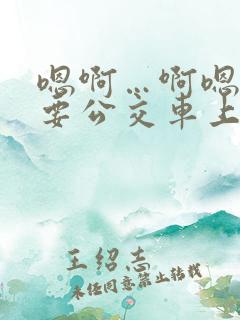 嗯啊…啊嗯
要公交车上
王绍志
未经同意禁止转载